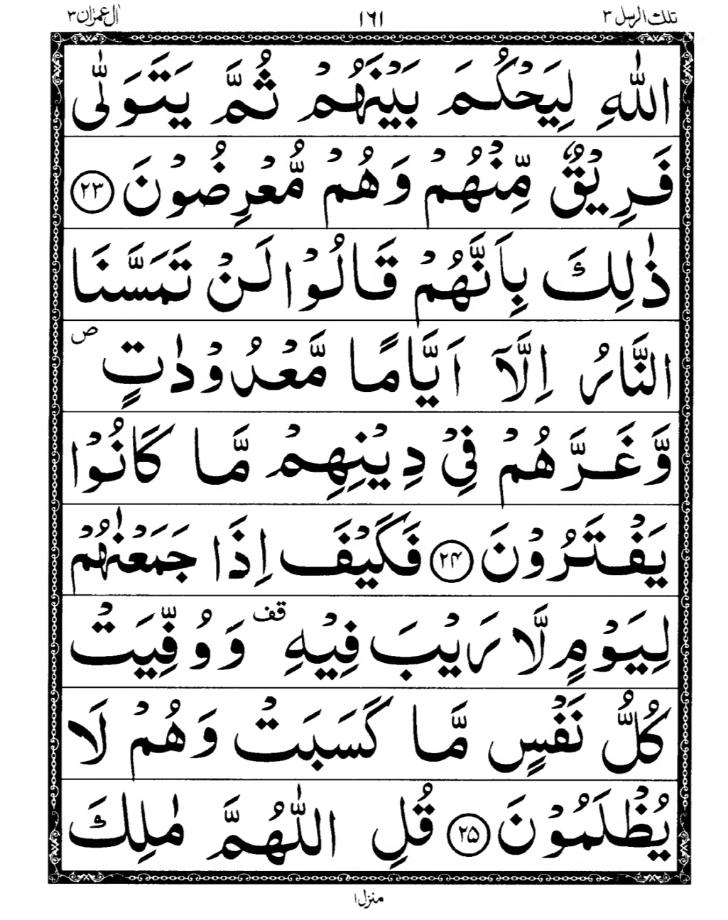 تلك الرسل ٣ ١٦١ اٰل عمرٰن ٣
اللّٰهِ لِيَحۡكُمَ بَيۡنَهُمۡ ثُمَّ يَتَوَلّٰى
فَرِيۡقٌ مِّنۡهُمۡ وَهُمۡ مُّعۡرِضُوۡنَ ﴿۲۳﴾
ذٰلِكَ بِاَنَّهُمۡ قَالُوۡا لَنۡ تَمَسَّنَا
النَّارُ اِلَّاۤ اَيَّامًا مَّعۡدُوۡدٰتٍ ص
وَّغَرَّهُمۡ فِىۡ دِيۡنِهِمۡ مَّا كَانُوۡا
يَفۡتَرُوۡنَ ﴿۲۴﴾ فَكَيۡفَ اِذَا جَمَعۡنٰهُمۡ
لِيَوۡمٍ لَّا رَيۡبَ فِيۡهِ قف وَوُفِّيَتۡ
كُلُّ نَفۡسٍ مَّا كَسَبَتۡ وَهُمۡ لَا
يُظۡلَمُوۡنَ ﴿۲۵﴾ قُلِ اللّٰهُمَّ مٰلِكَ
منزل ١